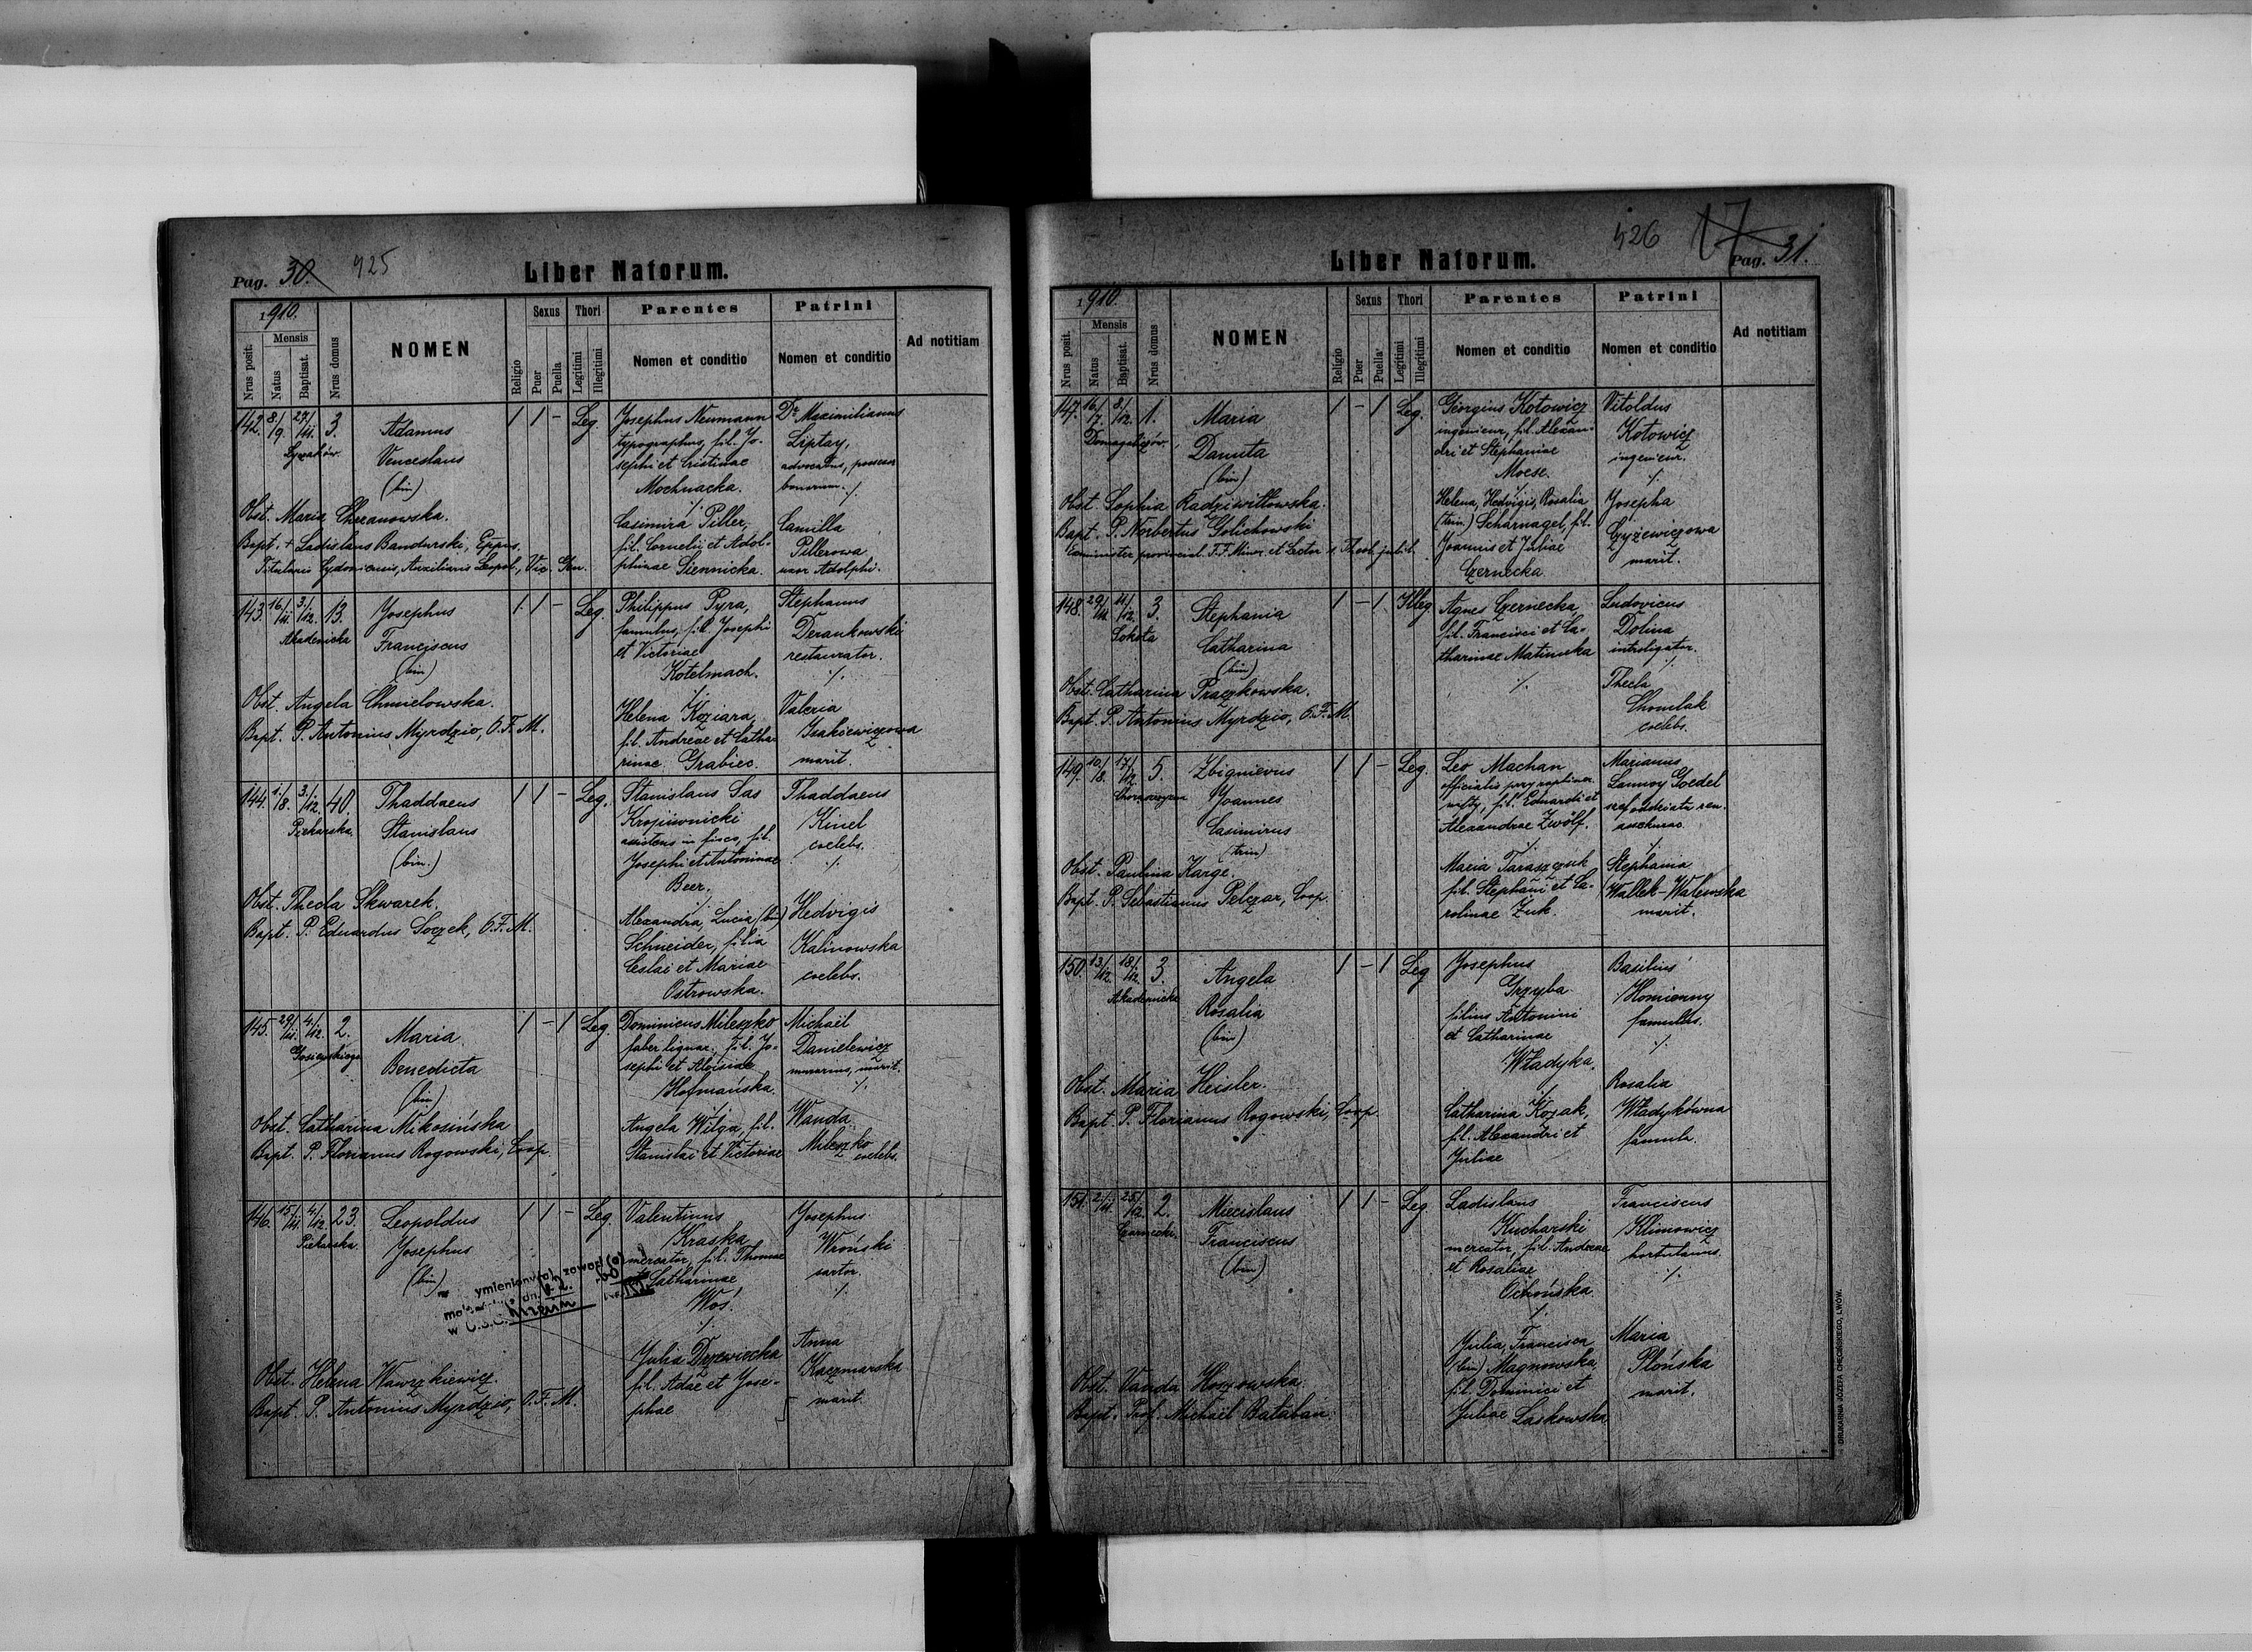 Pag. 30. 425
Liber Natorum.
1910.
Nrus posit.
Mensis
Natus
Baptisat.
Nrus domus
NOMEN
Religio
Sexus
Puer
Puella
Thori
Legitimi
Illegitimi
Parentes
Nomen et conditio
Patrini
Nomen et conditio
Ad notitiam
142. 8/9. 27/11. 3.
Łyczaków.
Adamus
Venceslaus
(bin)
1 1 - Leg.
Josephus Neumann
typographus, fil. Jo-
sephi et Cristinae
Mochnacka.
./.
Casimira Piller,
fil. Cornelii et Adol-
phinae Siennicka.
Dr. Maximilianus
Liptay,
advocatus, possessor
bonorum. ./.
Camilla
Pillerowa
uxor Adolphi.
Obst. Maria Chrzanowska.
Bapt. + Ladislaus Bandurski, Eppus,
Titularis Cydoniensis, Auxiliaris Leopol., Vic. Gen.
143. 16/11. 3/12. 13.
Akademicka
Josephus
Franciscus
(bin)
1. 1 - Leg.
Philippus Pyra,
famulus, fil. Josephi
et Victoriae
Kotelmach.
./.
Helena Koziara,
fil. Andreae et Catha-
rinae Grabiec.
Stephanus
Derankowski
restaurator.
./.
Valeria
Isakiewiczowa
marit.
Obst. Angela Chmielowska.
Bapt. P. Antonius Myrdzio, O.F.M.
144. 1/8. 3/12. 40.
Piekarska.
Thaddaeus
Stanislaus
(bin.)
1 1 - Leg.
Stanislaus Sas
Kropiwnicki
assistens in fisco, fil.
Josephi et Antoninae
Beer.
./.
Alexandra, Lucia (bin)
Schneider, filia
Ceslai et Mariae
Ostrowska.
Thaddaeus
Kinel
coelebs.
./.
Hedvigis
Kalinowska
coelebs.
Obst. Thecla Skwarek.
Bapt. P. Eduardus Soczek, O.F.M.
145. 29/11. 4/12. 2.
Gosiewskiego
Maria
Benedicta
(bin)
1 - 1 Leg.
Dominicus Mileszko
faber lignar., fil. Jo-
sephi et Aloisiae
Hofmańska.
./.
Angela Wilga, fil.
Stanislai et Victoriae
Michaël
Danielewicz
murarius, marit.
./.
Wanda
Mileszko
coelebs.
Obst. Catharina Mikosińska
Bapt. P. Florianus Rogowski, Coop.
146. 15/11. 4/12. 23.
Piekarska.
Leopoldus
Josephus
(bin)
1 1 - Leg.
Valentinus
Kraska
mercator, fil. Thomae
et Catharinae
Woś.
./.
Julia Drzewiecka
fil. Adae et Jose-
phae
Josephus
Wroński
sartor.
./.
Anna
Kaczmarska
marit.
ymieniony(a) zawarł(a)
w U.S.C.
Obst. Helena Wawrzkiewicz.
Bapt. P. Antonius Myrdzio, O.F.M.
426 17 Pag. 31.
Liber Natorum.
1910.
Nrus posit.
Mensis
Natus
Baptisat.
Nrus domus
NOMEN
Religio
Sexus
Puer
Puella
Thori
Legitimi
Illegitimi
Parentes
Nomen et conditio
Patrini
Nomen et conditio
Ad notitiam
147. 16/7. 8/12. 1.
Domagaliczów.
Maria
Danuta
(bin)
1 - 1 Leg.
Georgius Kotowicz
ingenieur, fil. Alexan-
dri et Stephaniae
Moese.
./.
Helena, Hedvigis, Rosalia
(trin.) Scharnagel, fil.
Joannis et Juliae
Czernecka
Vitoldus
Kotowicz
ingenieur.
./.
Josepha
Gyżewiczowa
marit.
Obst. Sophia Radziwiłłowska.
Bapt. P. Norbertus Golichowski
Exminister provincial. F.F. Minor. et Lector s. Theol. jubil.
148. 29/11. 11/12. 3.
Sokoła
Stephania
Catharina
(bin)
1 - 1. Illeg.
Agnes Czernecka,
fil. Francisci et Ca-
tharinae Matiuska
./.
Ludovicus
Dolina
introligator.
./.
Thecla
Chomlak
coelebs.
Obst. Catharina Praczkowska.
Bapt. P. Antonius Myrdzio, O.F.M.
149. 10/8. 17/12. 5.
Chorąszczyzna
Zbignievus
Joannes
Casimirus
(trin)
1 1 - Leg.
Leo Machan
officialis
nafty, fil. Eduardi et
Alexandrae Zwölf.
./.
Maria Taraszczuk
fil. Stephani et Ca-
rolinae Zuk.
Marianus
Lannoy Goedel
assekurac.
./.
Stephania
Wallek-Walewska
marit.
Obst. Paulina Karge.
Bapt. P. Sebastianus Pelczar, Coop.
150. 13/12. 18/12. 3.
Akademicka
Angela
Rosalia
(bin)
1 - 1 Leg
Josephus
Grzyba
filius Antonini
et Catharinae
Władyka.
./.
Catharina Kozak,
fil. Alexandri et
Juliae
Basilius
Homianny
famulus.
./.
Rosalia
Władykówna
famula.
Obst. Maria Heisler.
Bapt. P. Florianus Rogowski, Coop.
151. 2/11. 25/12. 2.
Czarnecki.
Miecislaus
Franciscus
(bin)
1 1 - Leg.
Ladislaus
Kucharski
mercator, fil. Andreae
et Rosaliae
Cichońska.
./.
Julia, Francisca
(bin) Magnowska,
fil. Dominici et
Juliae Laskowska
Franciscus
Klimowicz
hortulanus.
./.
Maria
Płońska
marit.
Obst. Vanda Hoszowska
Bapt. Prof. Michaël Bałaban.
DRUKARNIA JÓZEFA CHĘCIŃSKIEGO, LWÓW.